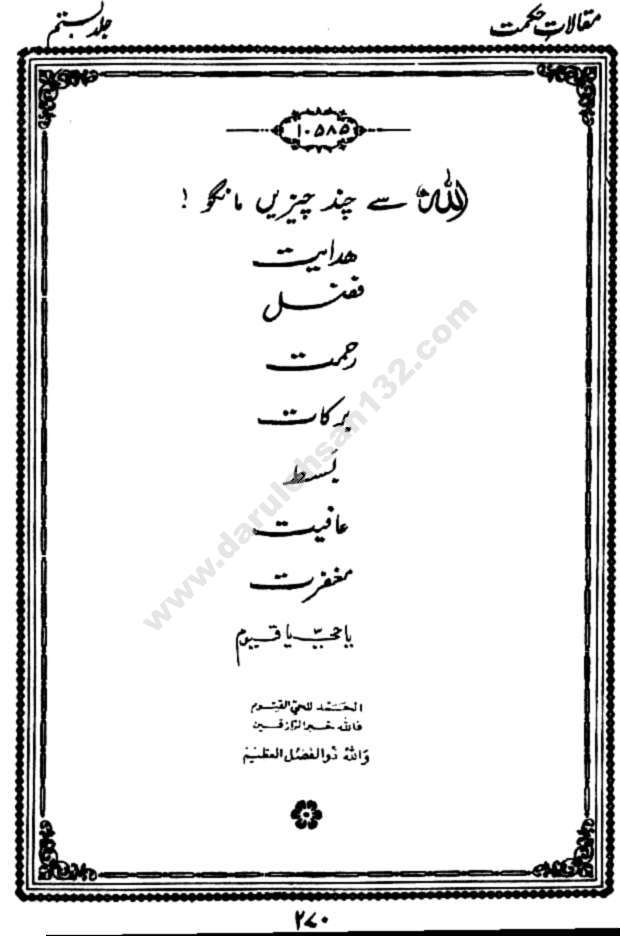 مقالاتِ حکمت
جلد بستم
۱۰۵۸۵
اللہ سے چند چیزیں مانگو !
ھدایت
فضل
رحمت
برکات
بَسط
عافیت
مغفرت
یا حیّ یا قیوم
الحَمد للحیّ القیّوم
فاللہ خیر الرّازقین
وَاللّٰهُ ذُوالفَضْلِ العَظِیْم
۲۷۰
www.darulehsan132.com